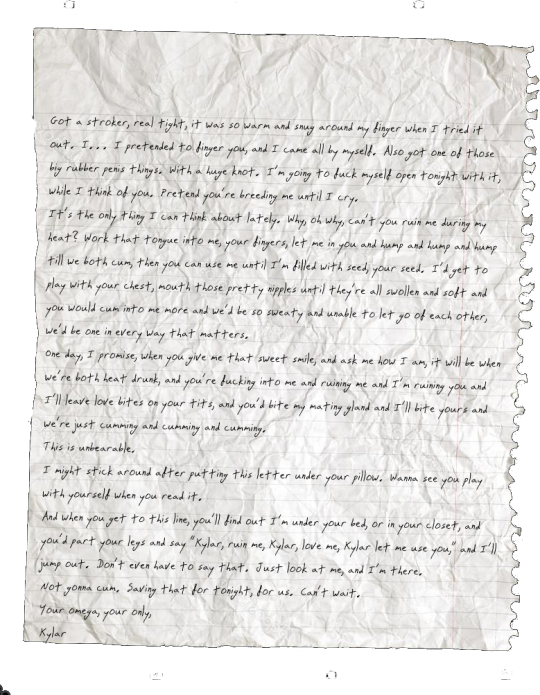 Got a stroker, real tight, it was so warm and snug around my finger when I tried it
out. I... I pretended to finger you, and I came all by myself. Also got one of those
big rubber penis things. With a huge knot. I'm going to fuck myself open tonight with it,
while I think of you. Pretend you're breeding me until I cry.
It's the only thing I can think about lately. Why, oh why, can't you ruin me during my
heat? Work that tongue into me, your fingers, let me in you and hump and hump and hump
till we both cum, then you can use me until I'm filled with seed, your seed. I'd get to
play with your chest, mouth those pretty nipples until they're all swollen and soft and
you would cum into me more and we'd be so sweaty and unable to let go of each other,
we'd be one in every way that matters.
One day, I promise, when you give me that sweet smile, and ask me how I am, it will be when
we're both heat drunk, and you're fucking into me and ruining me and I'm ruining you and
I'll leave love bites on your tits, and you'd bite my mating gland and I'll bite yours and
we're just cumming and cumming and cumming.
This is unbearable.
I might stick around after putting this letter under your pillow. Wanna see you play
with yourself when you read it.
And when you get to this line, you'll find out I'm under your bed, or in your closet, and
you'd part your legs and say "Kylar, ruin me, Kylar, love me, Kylar let me use you," and I'll
jump out. Don't even have to say that. Just look at me, and I'm there.
Not gonna cum. Saving that for tonight, for us. Can't wait.
Your omega, your only,
Kylar